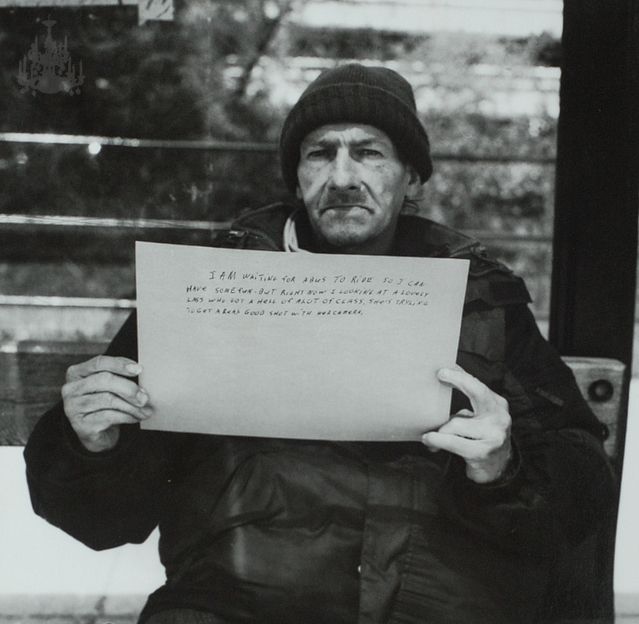 I AM WAITING FOR A BUS TO RIDE SO I CAN
HAVE SOME FUN. BUT RIGHT NOW I LOOKING AT A LOVELY
LASS WHO GOT A HELL OF ALOT OF CLASS, SHE'S TRYLING
TO GET A REAL GOOD SHOT WITH HER CAMERA.